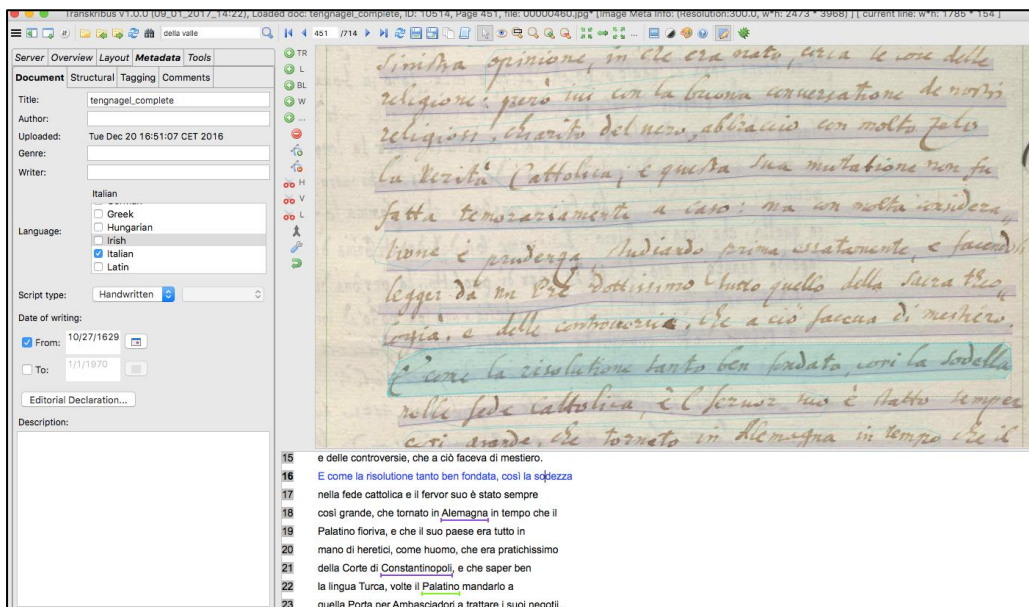 Transkribus v1.0.0 (09_01_2017_14:22), Loaded doc: tengnagel_complete, ID: 10514, Page 451, file: 00000460.jpg* [Image Meta Info: (Resolution:300.0, w*h: 2473 * 3968) ] [ current line: w*h: 1785 * 154 ]
della valle
451 /714
Server Overview Layout Metadata Tools
Document Structural Tagging Comments
Title: tengnagel_complete
Author:
Uploaded: Tue Dec 20 16:51:07 CET 2016
Genre:
Writer:
Italian
Language:
Greek
Hungarian
Irish
Italian
Latin
Script type: Handwritten
Date of writing:
From: 10/27/1629
To: 1/1/1970
Editorial Declaration...
Description:
TR
L
BL
W
...
H
V
L
sinistra opinione, in che era nato, circa le cose delle
religione: però qui con la buona conversatione de nostri
religiosi, chiarito del vero, abbracciò con molto zelo
la Verità Cattolica, e questa sua mutatione non fu
fatta temerariamente a caso: ma con molta considera„
tione è prudenza, studiando prima essatamente, e facendosi
legger da un Pre Dottissimo tutto quello della sacra theo„
logia, e delle controversie, che a ciò faceva di mestiero.
E come la risolutione tanto ben fondata, così la sodezza
nella fede Cattolica, è l fervor suo è stato sempre
così grande, che tornato in Alemagna in tempo che il
15 e delle controversie, che a ciò faceva di mestiero.
16 E come la risolutione tanto ben fondata, così la sodezza
17 nella fede cattolica e il fervor suo è stato sempre
18 così grande, che tornato in Alemagna in tempo che il
19 Palatino fioriva, e che il suo paese era tutto in
20 mano di heretici, come huomo, che era pratichissimo
21 della Corte di Constantinopoli, e che saper ben
22 la lingua Turca, volte il Palatino mandarlo a
23 quella Porta per Ambasciadori a trattare i suoi negotii.